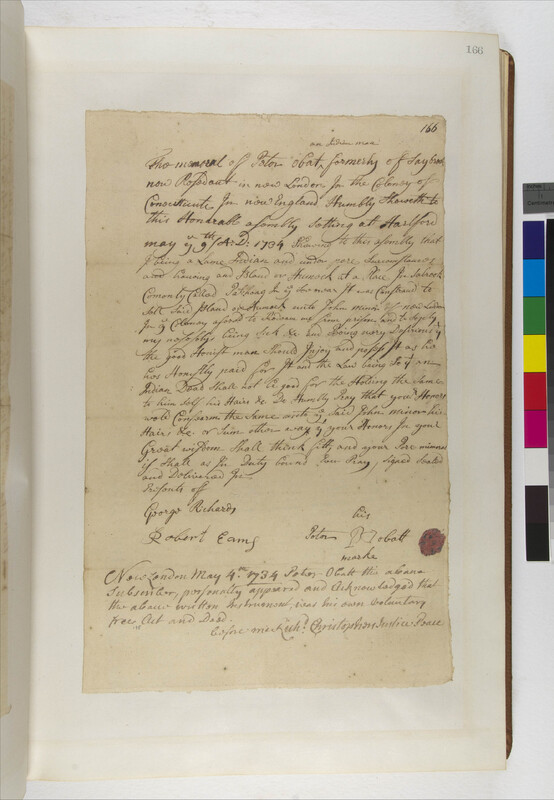 166
166
an Indian man
The memoral of Peter Obat, formerly off Saybrook
now Resedant in new London In the Colony of
Conecticute In new England Humbly Sheweth to
this Honorable assembly setting at Hartford
may ye 9th A:D: 1734 Shewing to this assembly that
I being a Lame Indian and under pore Surcumstances
and haveing and Island or Humock at a Place In Sabrook
Comonly Called I was Constrand to
Sell Said Island or Humock unto John minor of new London
In ye Colony afored to me from prison and to Suply
my nesesetys being Sick &c and being very Desirous yt
the good Honist man Should Injoy and poses It as he
has Honestly paid for It and the Law being So yt an
Indian Deed Shall not be good for the Holding the Same
to him self his Hairs &c Do Humbly Pray that your Honors
wold Conferm the Same unto ye Said John minor his
Hairs &c or Sum other way as your Honors In your
Great wisdom Shall think fitt, and your Pore
Shall as In Duty bound Ever Pray, signed Sealed
and Delivered In
Presents off
George Richards
his
Robert Eams
Peter Obatt
marke
New London May 4th 1734 Peter Obatt the above
Subscriber, personally appeared and Acknowledged that
the above written Instrument, was his own voluntary
free Act and Deed.
before me Richd Christophers Justice Peace